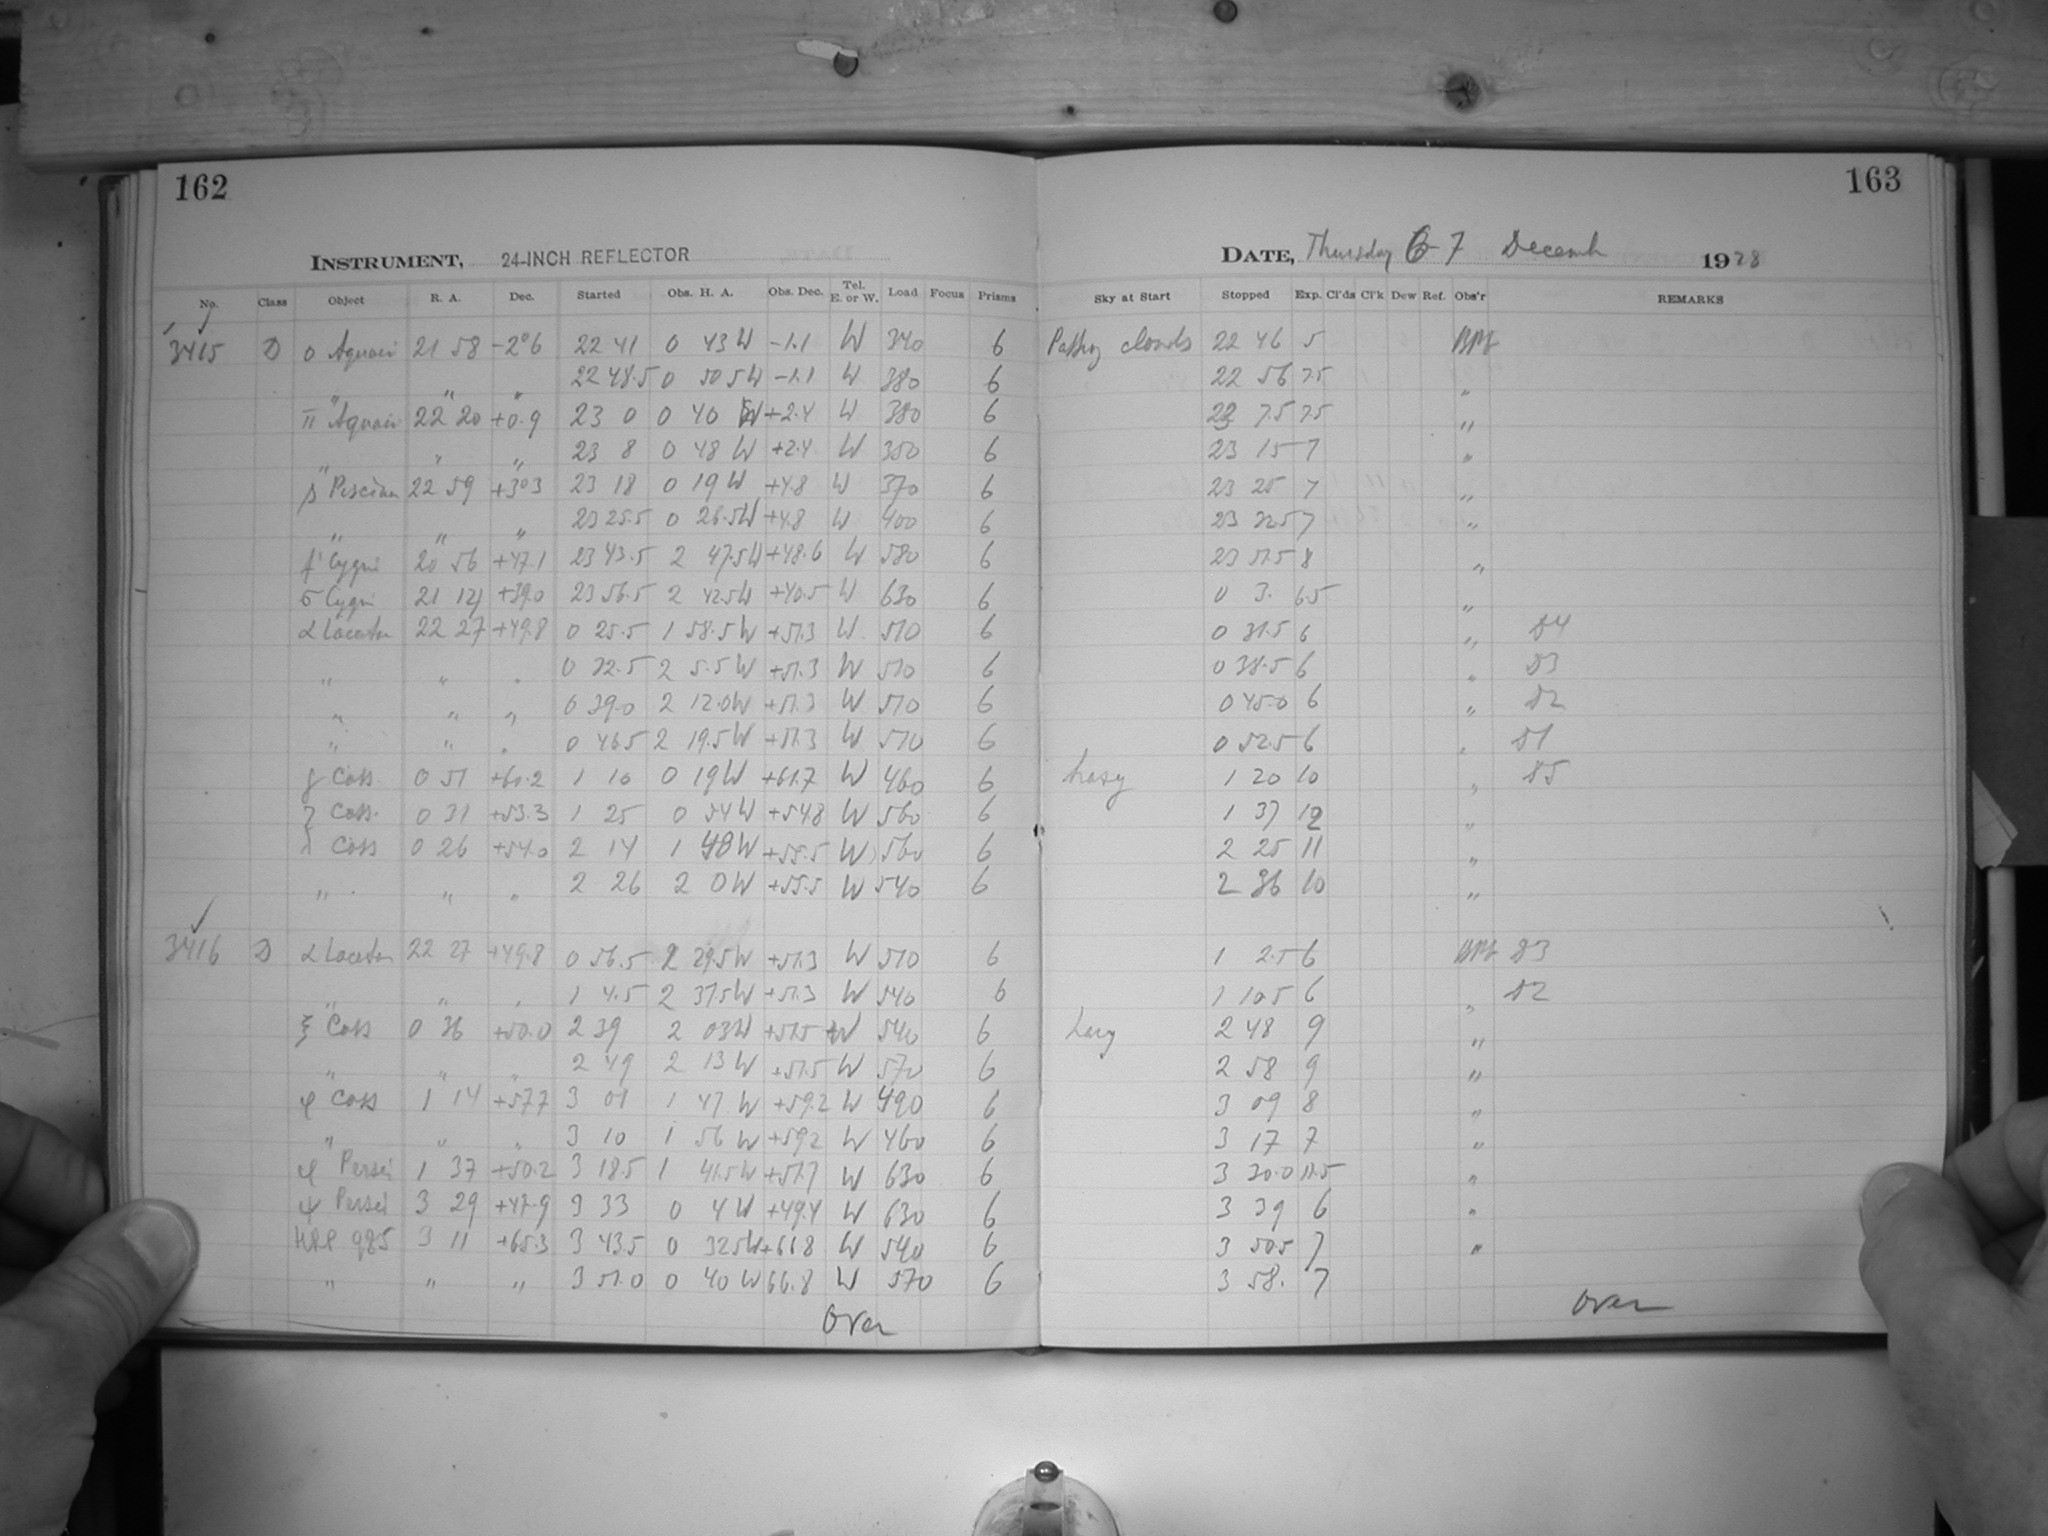 162
163
INSTRUMENT, 24-INCH REFLECTOR
DATE, Thursday 6-7 Decemb 1928
No. Class Object R. A. Dec. Started Obs. H. A. Obs. Dec. Tel. E. or W. Load Focus Prisms Sky at Start Stopped Exp. Cl'ds Cl'k Dew Ref. Obs'r REMARKS
3415 D o Aquarii 21 58 -2°6 22 41 0 43 W -1.1 W 340 6 Passing clouds 22 46 5
" " " 22 48.5 0 50 5W -1.1 W 380 6 22 56 7.5 "
π Aquarii 22 20 +0.9 23 0 0 40 W +2.4 W 380 6 7.5 7.5 "
" " " 23 8 0 48 W +2.4 W 350 6 23 15 7 "
β Piscium 22 59 +3°3 23 18 0 19 W +4.8 W 370 6 23 25 7 "
" " " 23 25.5 0 26.5W +4.8 W 400 6 23 32.5 7 "
f' Cygni 20 56 +47.1 23 43.5 2 47.5W +48.6 W 580 6 23 51.5 8 "
σ Cygni 21 14 +39.0 23 56.5 2 42.5W +40.5 W 630 6 0 3. 6.5 "
α Lacertae 22 27 +49.8 0 25.5 1 58.5W +51.3 W 510 6 0 31.5 6 " D4
" " " 0 32.5 2 5.5W +51.3 W 510 6 0 38.5 6 " D3
" " " 0 39.0 2 12.0W +51.3 W 510 6 0 45.0 6 " D2
" " " 0 46.5 2 19.5W +51.3 W 510 6 0 52.5 6 " D1
γ Cass. 0 51 +60.2 1 10 0 19W +61.7 W 460 6 hazy 1 20 10 " D5
ζ Cass. 0 31 +53.3 1 25 0 54W +54.8 W 560 6 1 37 12 "
λ Cass 0 26 +54.0 2 14 1 48W +55.5 W 560 6 2 25 11 "
" " " 2 26 2 0W +55.5 W 540 6 2 36 10 "
3416 D α Lacertae 22 27 +49.8 0 56.5 2 29.5W +51.3 W 510 6 1 2.5 6 D3
" " " 1 4.5 2 37.5W +51.3 W 540 6 1 10.5 6 " D2
ξ Cass 0 36 +50.0 2 39 2 03W +51.5 W 540 6 hazy 2 48 9 "
" " " 2 49 2 13W +51.5 W 570 6 2 58 9 "
φ Cass 1 14 +57.7 3 01 1 47 W +59.2 W 490 6 3 09 8 "
" " " 3 10 1 56 W +59.2 W 460 6 3 17 7 "
φ Persei 1 37 +50.2 3 18.5 1 41.5W +51.7 W 630 6 3 30.0 11.5 "
ψ Persei 3 29 +47.9 3 33 0 4 W +49.4 W 630 6 3 39 6 "
985 3 11 +65.3 3 43.5 0 32.5W +66.8 W 540 6 3 50.5 7 "
" " " 3 51.0 0 40 W 66.8 W 570 6 3 58. 7
Over
Over